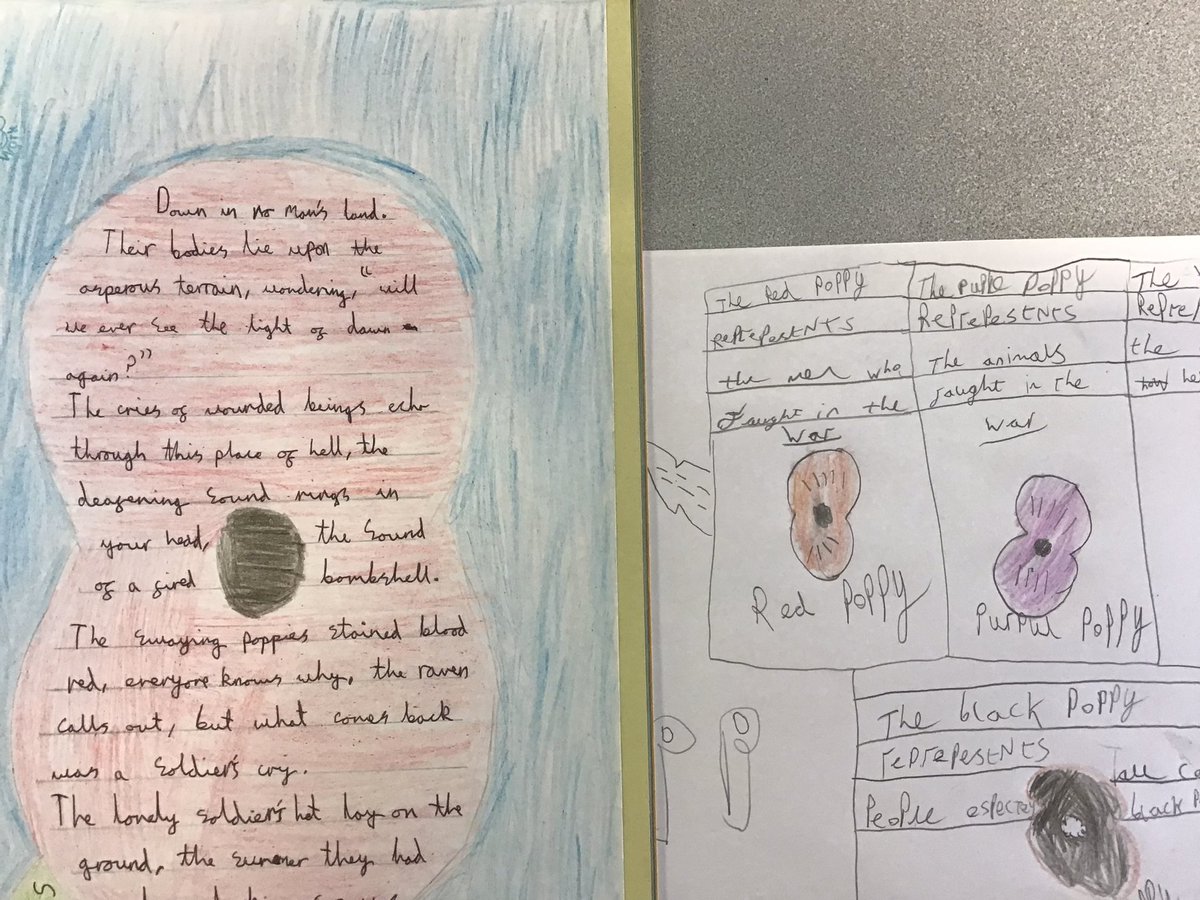 Down in no man's land.
Their bodies lie upon the
asperous terrain, wondering, "will
we ever see the light of dawn
again?"
The cries of wounded beings echo
through this place of hell, the
deafening sound rings in
your head, the sound
of a fired bombshell.
The swaying poppies stained blood
red, everyone knows why, the raven
calls out, but what comes back
was a soldier's cry.
The lonely soldier's hat lay on the
ground, the they had
The red poppy
reprepesents
the men who
faught in the
war
Red poppy
The purple poppy
Reprepesents
The animals
faught in the
war
Purpul poppy
The
Repre
the
The black poppy
reprepesents
People
black